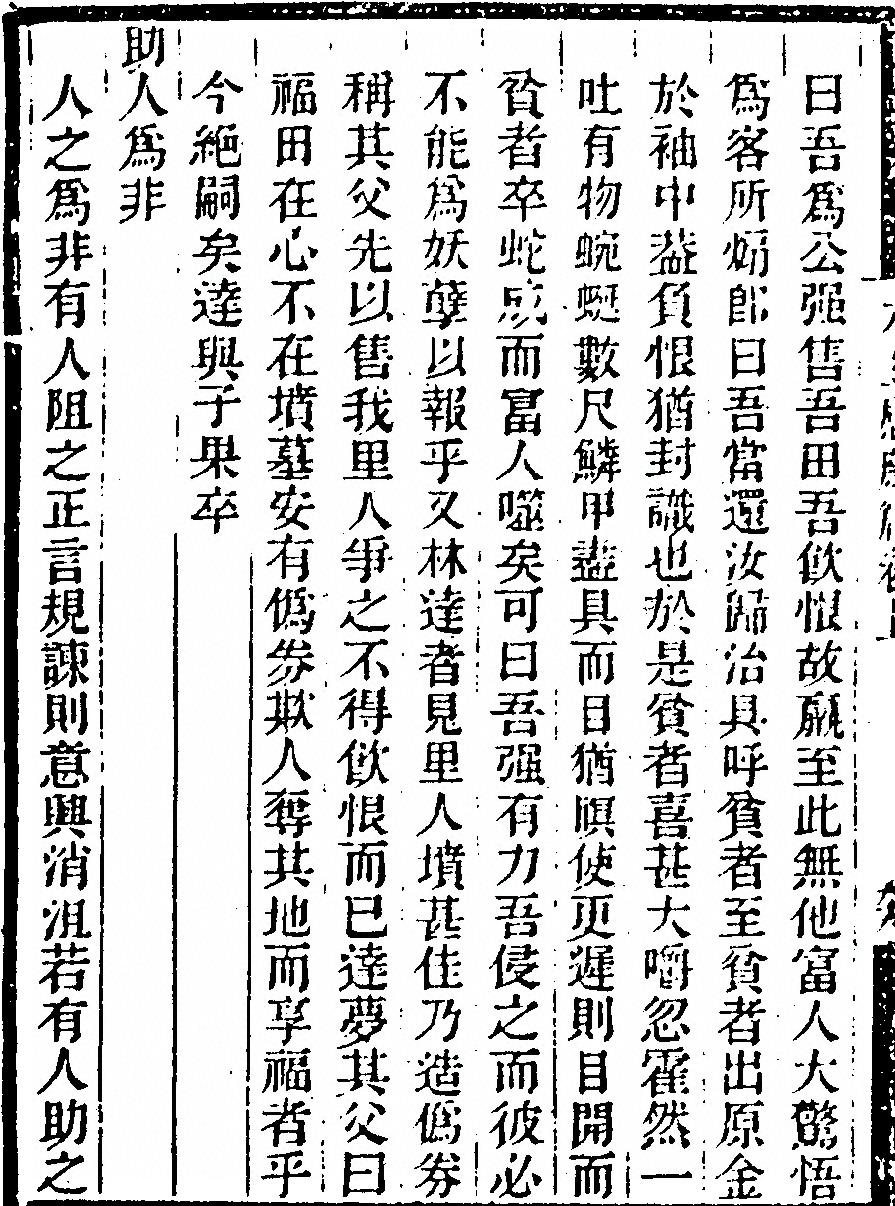 曰吾爲公强售吾田吾飲恨故願至此無他富人大驚悟
爲客所煽卽曰吾當還汝歸治具呼貧者至貧者出原金
於袖中葢負恨猶封識也於是貧者喜甚大嚼忽霍然一
吐有物蜿蜒數尺鱗甲盡具而目猶瞑使更遲則目開而
貧者卒蛇成而富人噬矣可曰吾强有力吾侵之而彼必
不能爲妖孽以報乎又林達者見里人墳甚佳乃造僞劵
稱其父先以售我里人爭之不得飲恨而已達夢其父曰
福田在心不在墳墓安有僞劵欺人奪其地而享福者乎
今絕嗣矣達與子果卒
助人爲非
人之爲非有人阻之正言規諫則意興消沮若有人助之